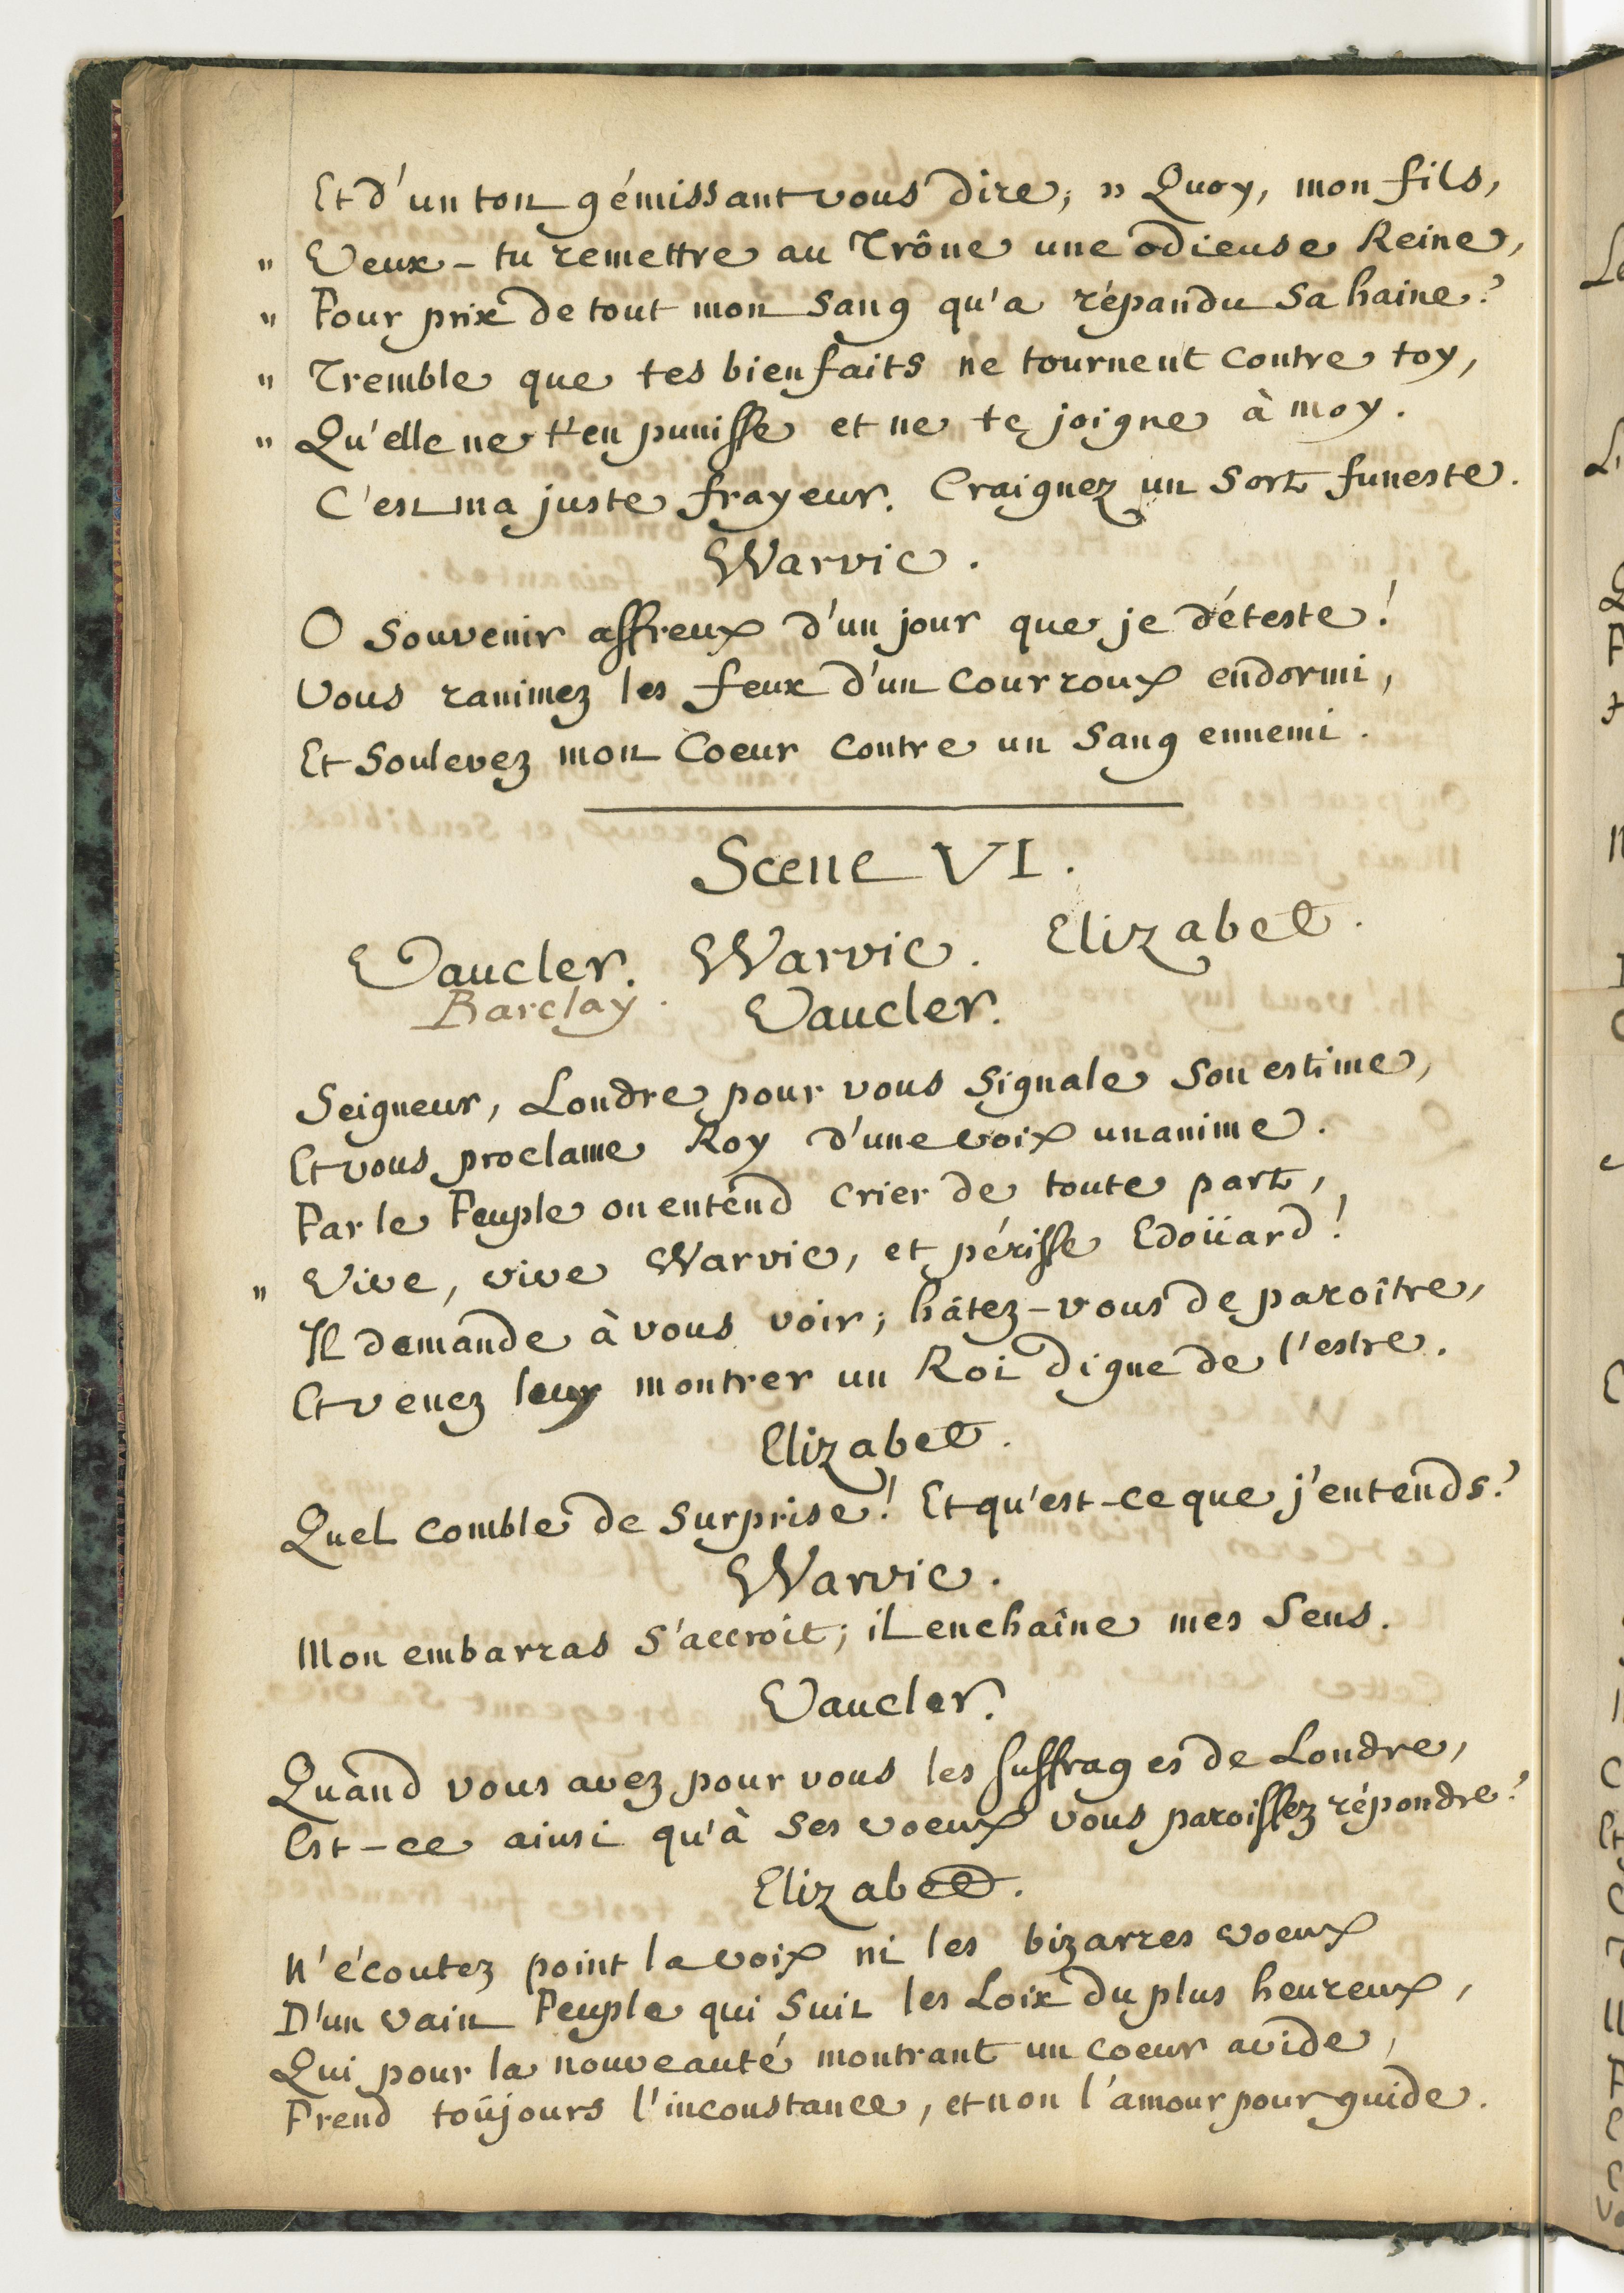 Et d'un ton gémissant vous dire; " Quoy, mon fils,
" Veux-tu remettre au Trône une odieuse Reine,
" Pour prix de tout mon sang qu'a répandu sa haine?
" Tremble que tes bienfaits ne tournent contre toy,
" Qu'elle ne t'en punisse et ne te joigne à moy.
C'est ma juste frayeur. Craignez un sort funeste.
Warvic.
O souvenir affreux d'un jour que je déteste!
Vous ranimez les feux d'un courroux endormi,
Et soulevez mon Coeur contre un sang ennemi.
Scene VI.
Vaucler. Warvic. Elizabet.
Barclay.
Vaucler.
Seigneur, Londre pour vous signale son estime,
Et vous proclame Roy d'une voix unanime.
Par le Peuple on entend crier de toute part,
" Vive, vive Warvic, et périsse Edoüard!
Il demande à vous voir; hâtez-vous de paroître,
Et venez leur montrer un Roi digne de l'estre.
Elizabet.
Quel comble de surprise! Et qu'est-ce que j'entends?
Warvic.
Mon embarras s'accroit; il enchaîne mes sens.
Vaucler.
Quand vous avez pour vous les suffrages de Londre,
Est-ce ainsi qu'à ses voeux vous paroissez répondre?
Elizabet.
N'écoutez point la voix ni les bizarres voeux
D'un vain Peuple qui suit les Loix du plus heureux,
Qui pour la nouveauté montrant un coeur avide,
Prend toûjours l'inconstance, et non l'amour pour guide.